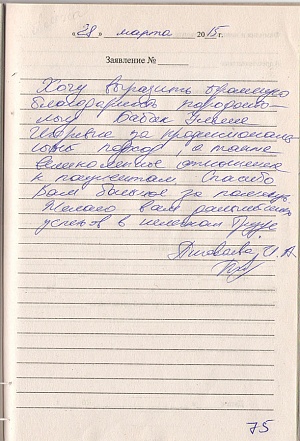 «28» марта 2015г.
Заявление №
Хочу выразить огромную
благодарность
Бабак Улья
за профессиональ
ный подход, а также
отношение
к пациентам. Спасибо
Вам большое за помощь.
Желаю вам дальнейших
успехов в нелегком труде.
И. А
75